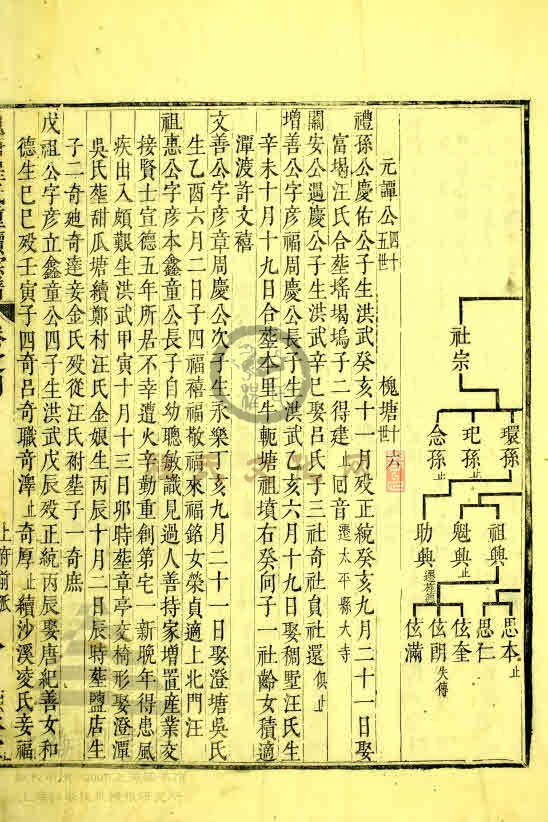 社宗
環孫
玘孫止
念孫止
祖興
魁興止
助興
思本止
思仁
伭奎
伭朗失傳
伭滿
元譚公四十五世
槐塘十六世
禮孫公慶佑公子生洪武癸亥十一月殁正統癸亥九月二十一日娶
富堨汪氏合塟塘堨塢子二得建止回音遷太平縣大寺
關安公遇慶公子生洪武辛巳娶呂氏子三社奇社負社還俱止
增善公字彦福周慶公長子生洪武乙亥六月十九日娶稠墅汪氏生
辛未十月十九日合塟本里生軛塘祖墳右癸向子一社齡女積適
潭渡許文禧
文善公字彦章周慶公次子生永樂丁亥九月二十一日娶澄塘吳氏
生乙酉六月二日子四福禧福敬福來福銘女榮貞適上北門汪
祖惠公字彦本鑫童公長子自幼聰敏識見過人善持家增置産業交
接賢士宣德五年所居不幸遭火辛勤重創第宅一新晚年得患風
疾出入頗艱生洪武甲寅十月十三日卯時塟章亭交椅形娶澄潭
吳氏塟甜瓜塘續鄭村汪氏金娘生丙辰十月二日辰時塟鹽店生
子二奇廸奇達妾金氏殁從汪氏祔塟子一奇庶
戊祖公字彦立鑫童公四子生洪武戊辰殁正統丙辰娶唐紀善女和
德生己巳殁壬寅子四奇呂奇職奇澤止奇厚止續沙溪凌氏妾福